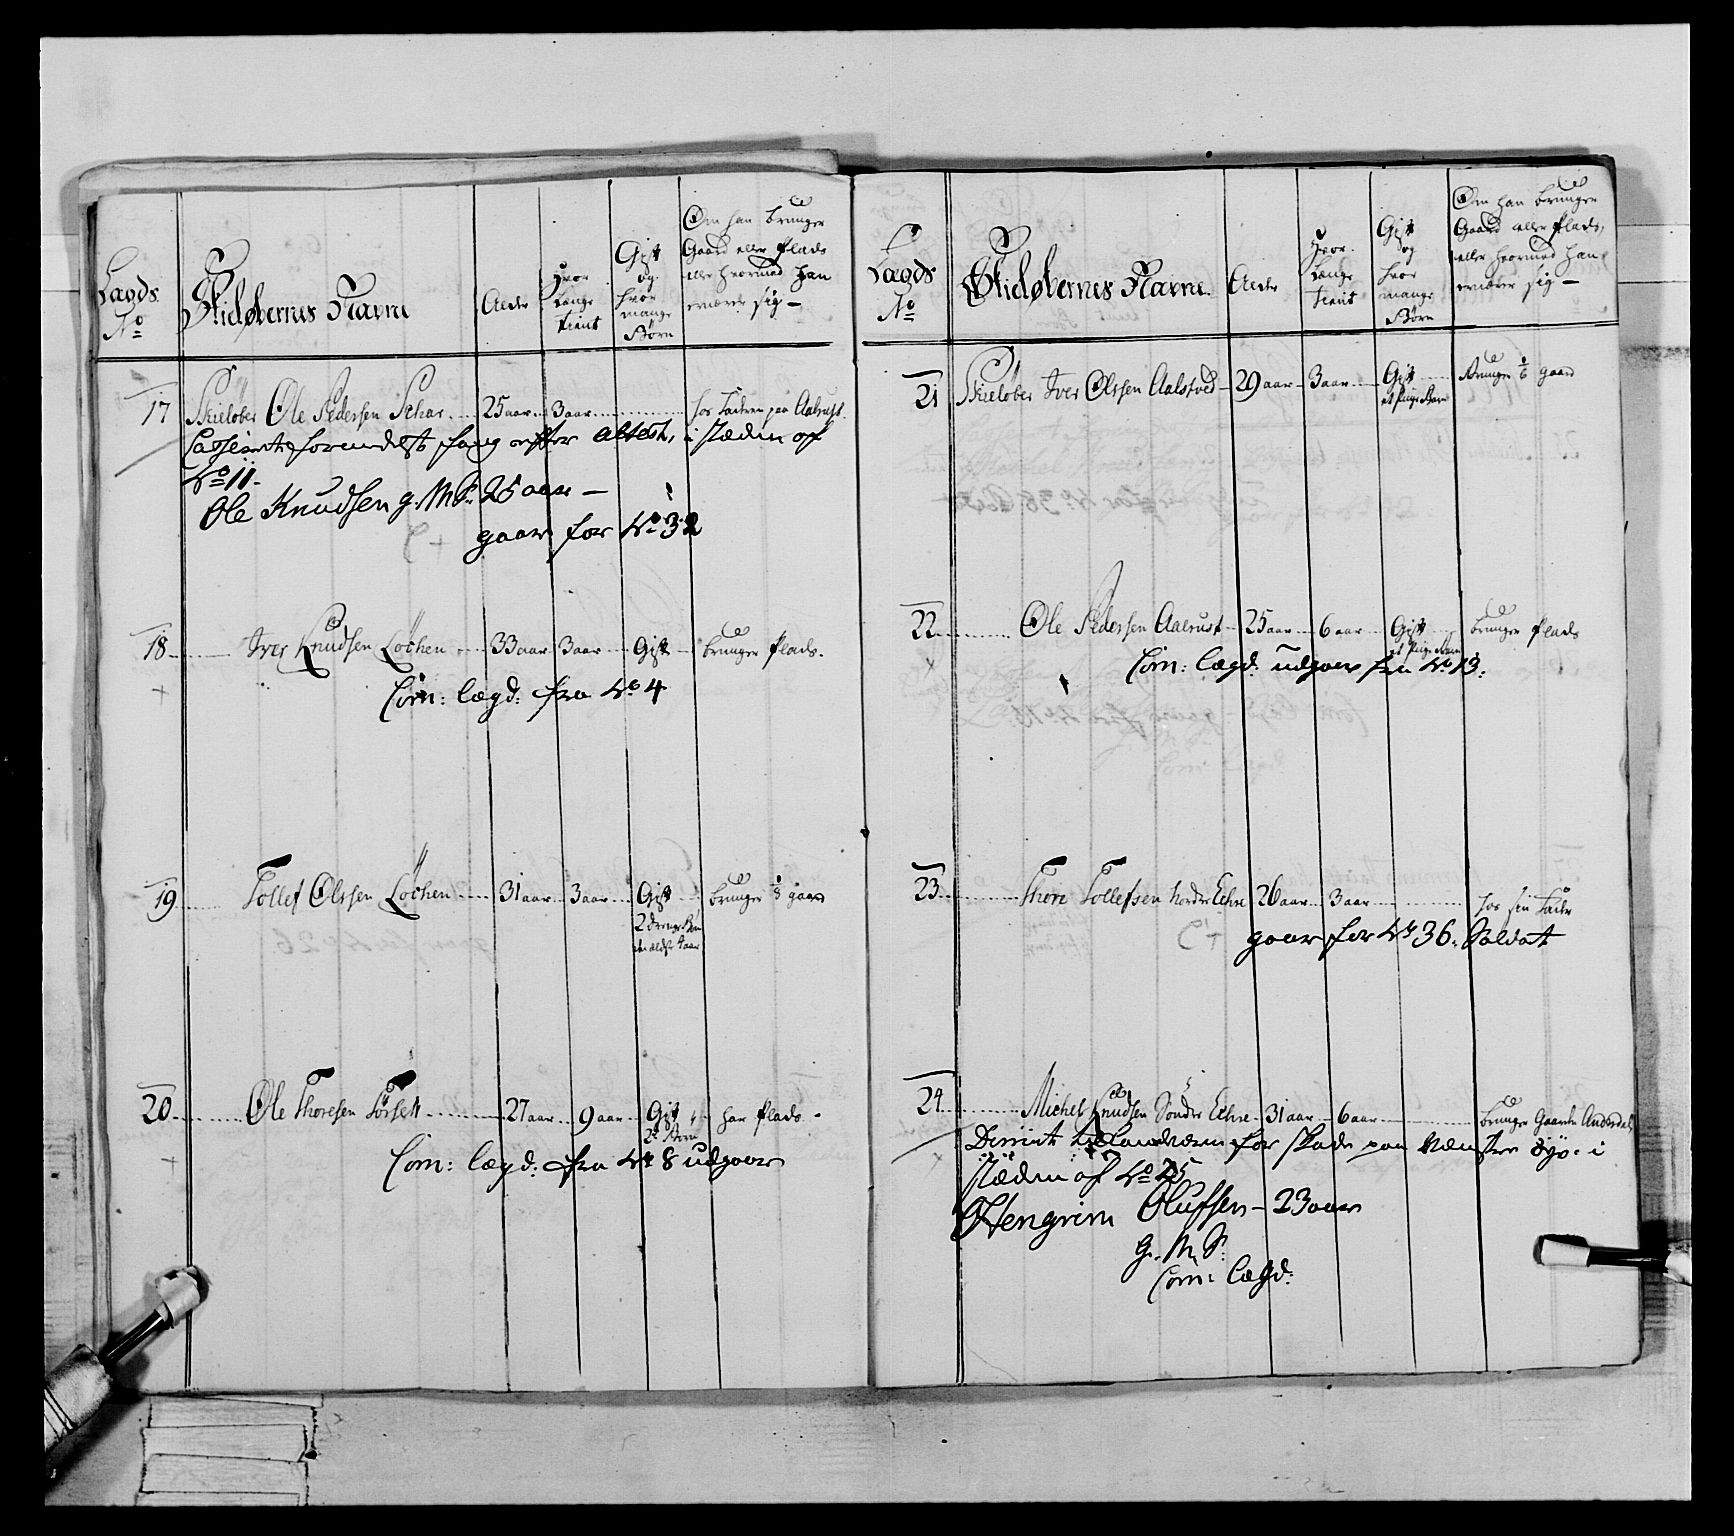 Lægds
No
Skieløbernes Navne
Alder
Hvor
Længe
tient
Gift
og
hvor
mange
Børn
Om han bruger
Gaard eller Plads
eller hvormed han
ernærer sig —
17 Skieløber Ole Pedersen Schar 25 aar 3 aar hos Faderen paa Aalrust
Casseret formedelst svag efter Attest, i stæden af
No 11.
Ole Knudsen g. M. S. 25 aar —
gaar for No 32
18 Iver Knudsen Löchen 33 aar 3 aar Gift bruger Plads.
Com: lægd: fra No 4
19 Tollef Olssen Löchen 31 aar 3 aar Gift bruger 1/8 gaard
2 drenge Børn
den ældste 4 aar
20 Ole Thoresen Torset 27 aar 9 aar Gift har Plads -
2 Børn
Com: lægd: fra No 8 udgaar
Lægds
No
Skieløbernes Navne
Alder
Hvor
Længe
tient
Gift
og
hvor
mange
Børn
Om han bruger
Gaard eller Plads,
eller hvormed han
ernærer sig —
21 Skieløber Iver Olssen Aalstved 29 aar 3 aar Gift Bruger 1/6 gaard
et Pige Barn
22 Ole Pedersen Aalrust 25 aar 6 aar Gift bruger Plads
et Pige Barn
Com: lægd: udgaar fra No 13.
23 Thore Tollefsen Nordre Echre 26 aar 3 aar hos sin Fader
gaar for No 36. Soldat
24 Michel Knudsen Söndre Echre 31 aar 6 aar bruger Gaarden Anderdal
Dimit: til Landværn for skade paa venstre øye. i
stæden af No 25
Hengrim Olufsen — 23 aar
g. M. S.
Com: lægd: